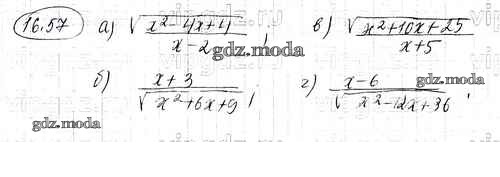 16.57 а) √(x² - 4x + 4) / (x - 2); в) √(x² + 10x + 25) / (x + 5)
gdz.moda gdz.moda
б) (x + 3) / √(x² + 6x + 9); г) (x - 6) / √(x² - 12x + 36);
gdz.moda gdz.moda
gdz.moda